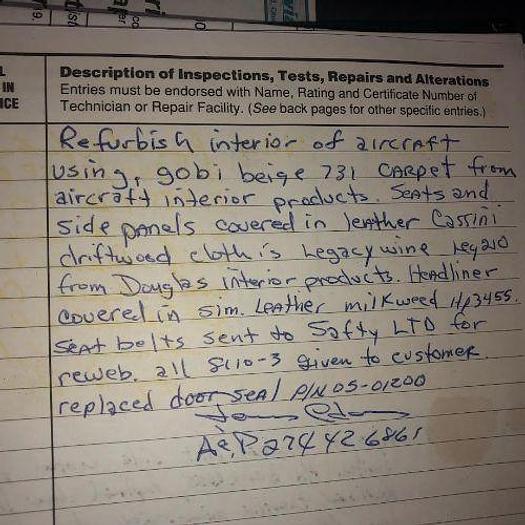 L
IN
ICE
Description of Inspections, Tests, Repairs and Alterations
Entries must be endorsed with Name, Rating and Certificate Number of
Technician or Repair Facility. (See back pages for other specific entries.)
Refurbish interior of aircraft
using, gobi beige 731 CARPET from
aircraft interior products. Seats and
side panels covered in leather Cassini
driftwood cloth is Legacy wine Leg210
from Douglas interior products. Headliner
covered in sim. Leather milkweed Hp3455.
Seat belts sent to Safty LTD for
reweb. all 8110-3 given to customer.
replaced door seal P/N 05-01200
A&P. 274426861